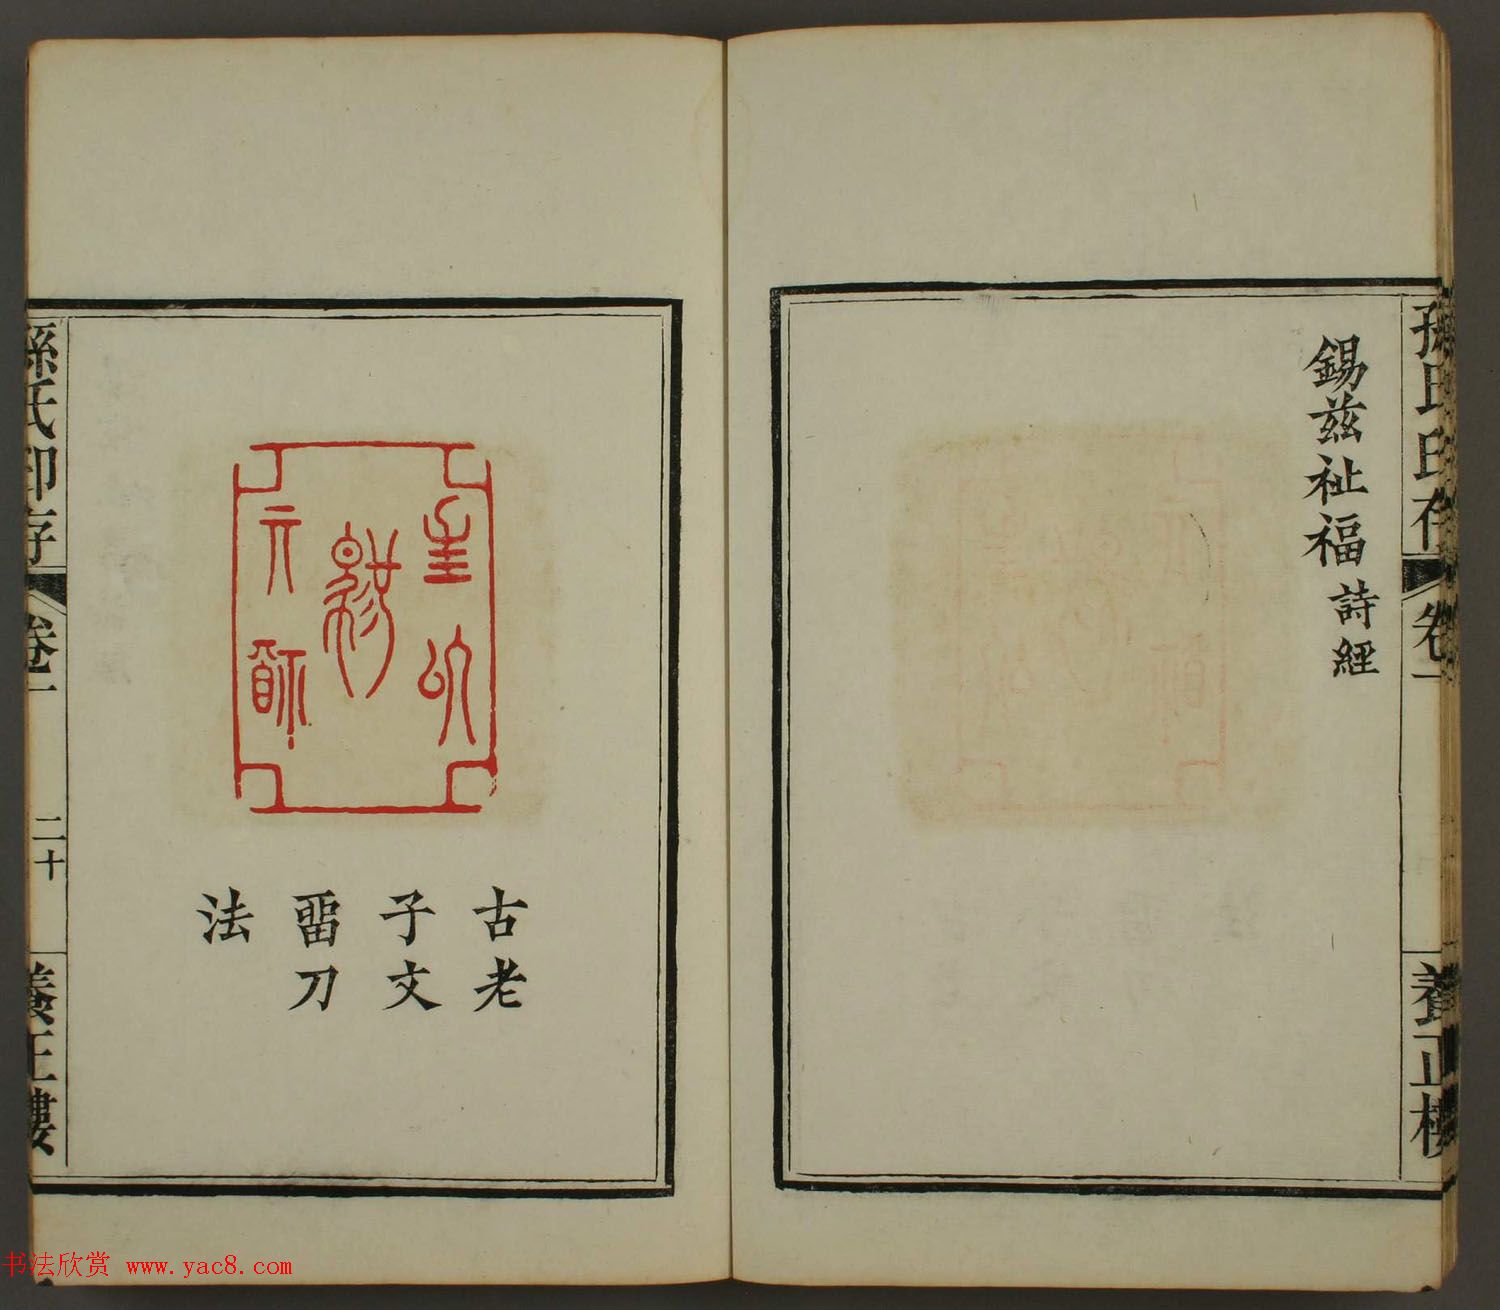 孫氏印存
卷一
養正樓
錫茲祉福詩經
古老
子文
畱刀
法
孫氏印存
卷一
二十
養正樓
书法欣赏 www.yac8.com